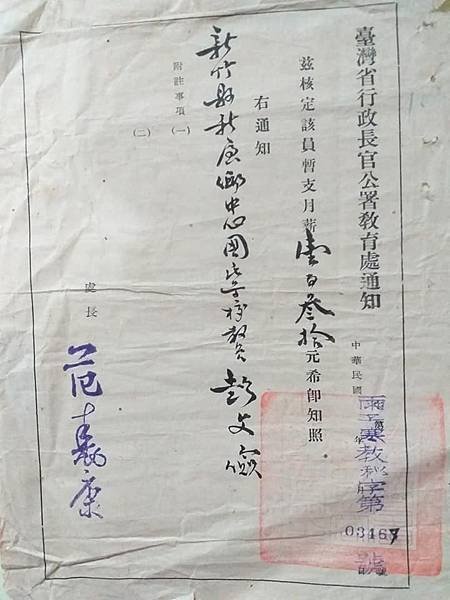 臺灣省行政長官公署教育處通知
中華民國 年 月
教秘字第 03467 號
茲核定該員暫支月薪壹百叁拾元希卽知照
右通知
新竹縣新屋鄉中心國民学校教員 彭文儉
附註事項 (一)
(二)
處長 范壽康